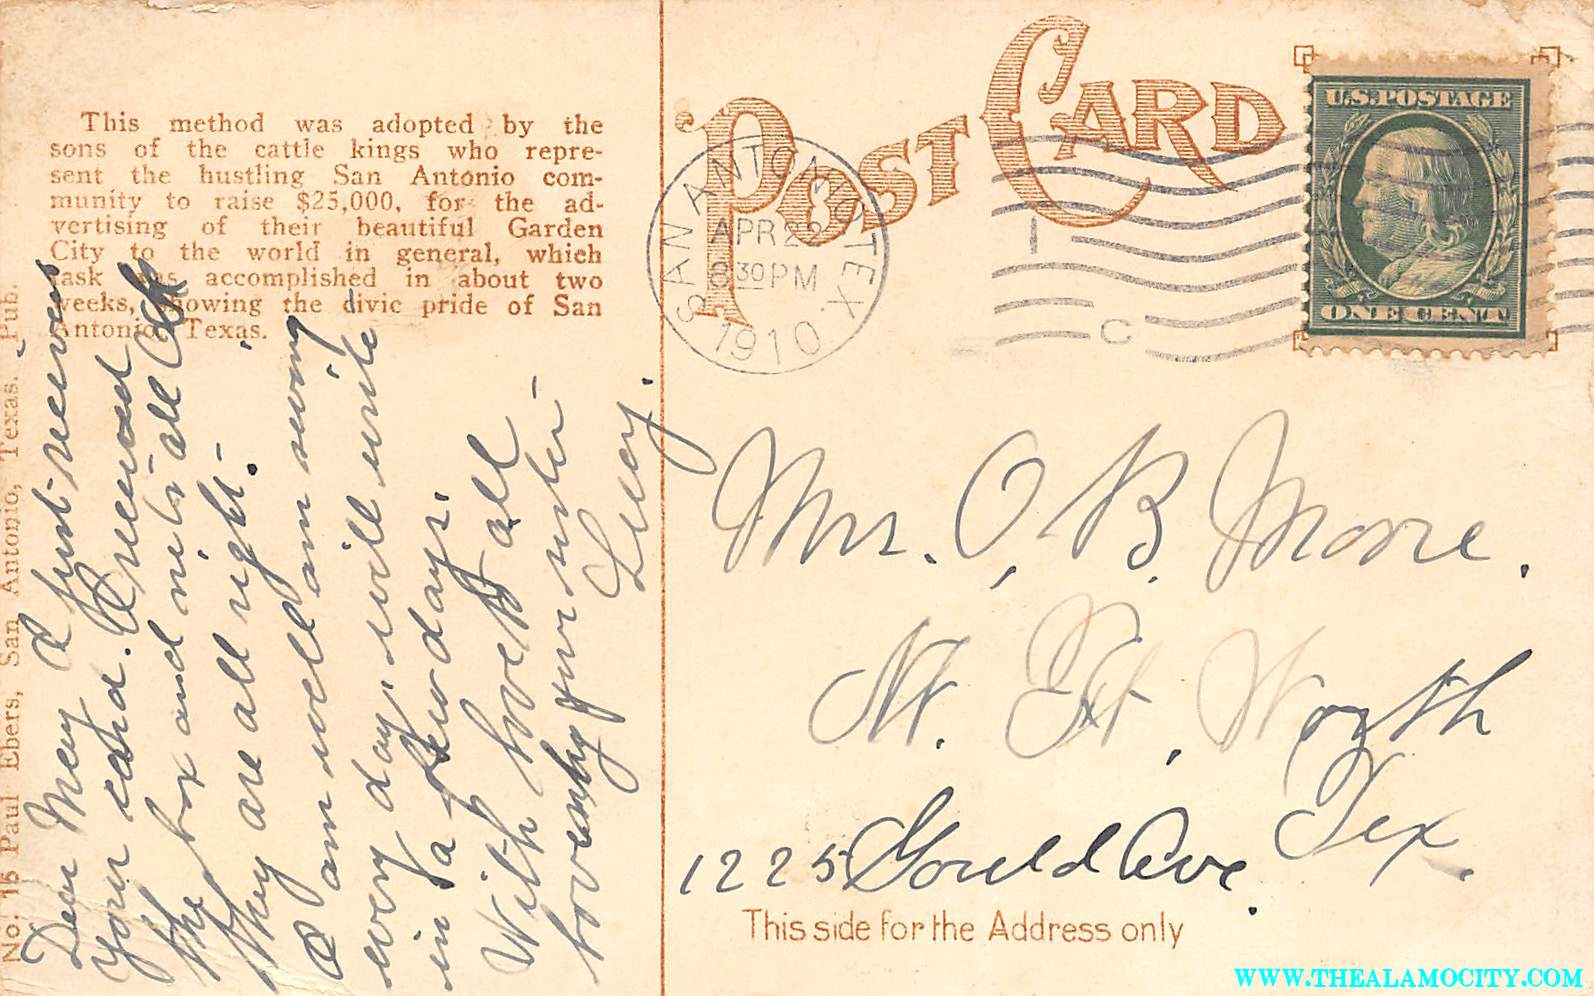 This method was adopted by the
sons of the cattle kings who repre-
sent the hustling San Antonio com-
munity to raise $25,000, for the ad-
vertising of their beautiful Garden
City to the world in general, which
task was accomplished in about two
weeks, showing the divic pride of San
Antonio, Texas.
No. 15 Paul Ebers, San Antonio, Texas. Pub.
Dear May I just received
your card. I received
the box and mits all
they are all right.
I am well am sewing
every day, will write
in a few days.
With love to all
lovingly your sister
Lucy.
POST CARD
SAN ANTONIO, TEX.
APR 22
830 PM
1910
1
C
U.S. POSTAGE
ONE CENT
Mrs. O. B. Moore.
N. Ft. Worth
Tex.
1225 Gould Ave.
This side for the Address only
WWW.THEALAMOCITY.COM